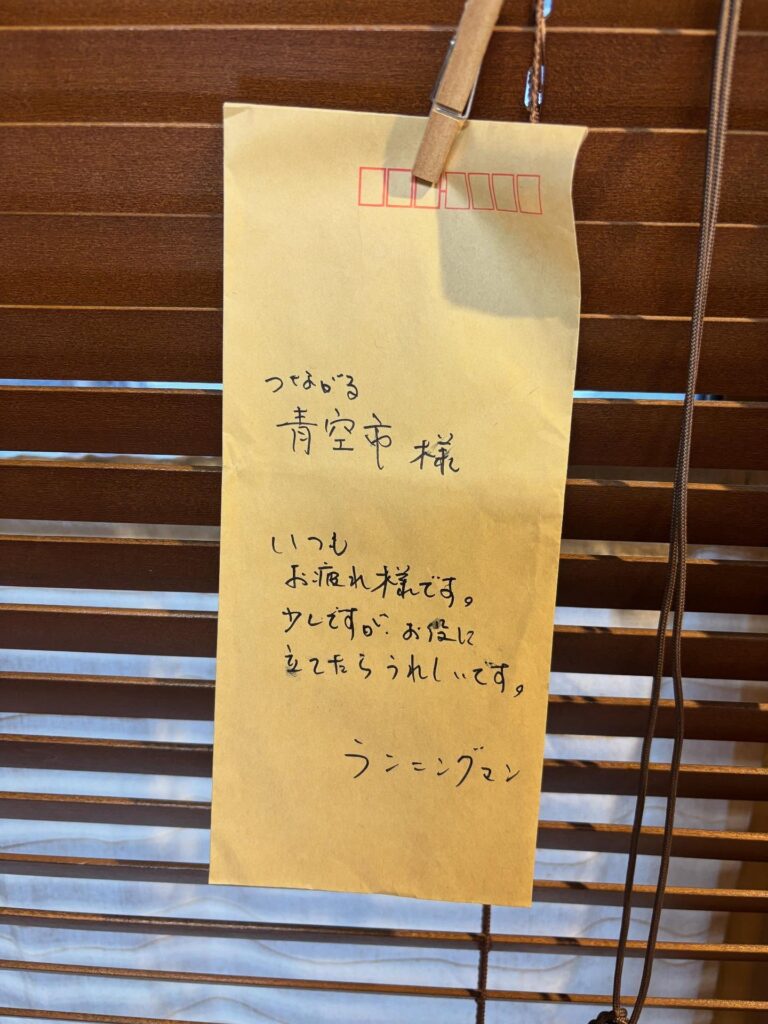 つながる
青空市 様
いつも
お疲れ様です。
少しですが、お役に
立てたらうれしいです。
ランニングマン